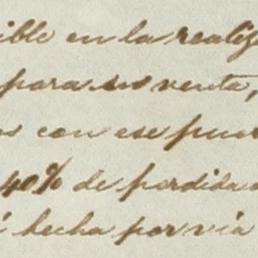 ible en la realiza
para su venta,
os con ese puer
40% de perdida
i hecha por via